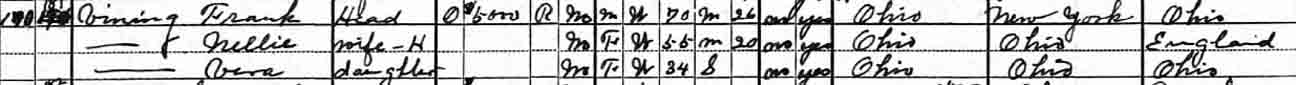 Vining Frank Head O 5000 R No M W 70 M 26 no yes Ohio New York Ohio
— Nellie wife-H No F W 55 M 20 no yes Ohio Ohio England
— Vera daughter No F W 34 S no yes Ohio Ohio Ohio